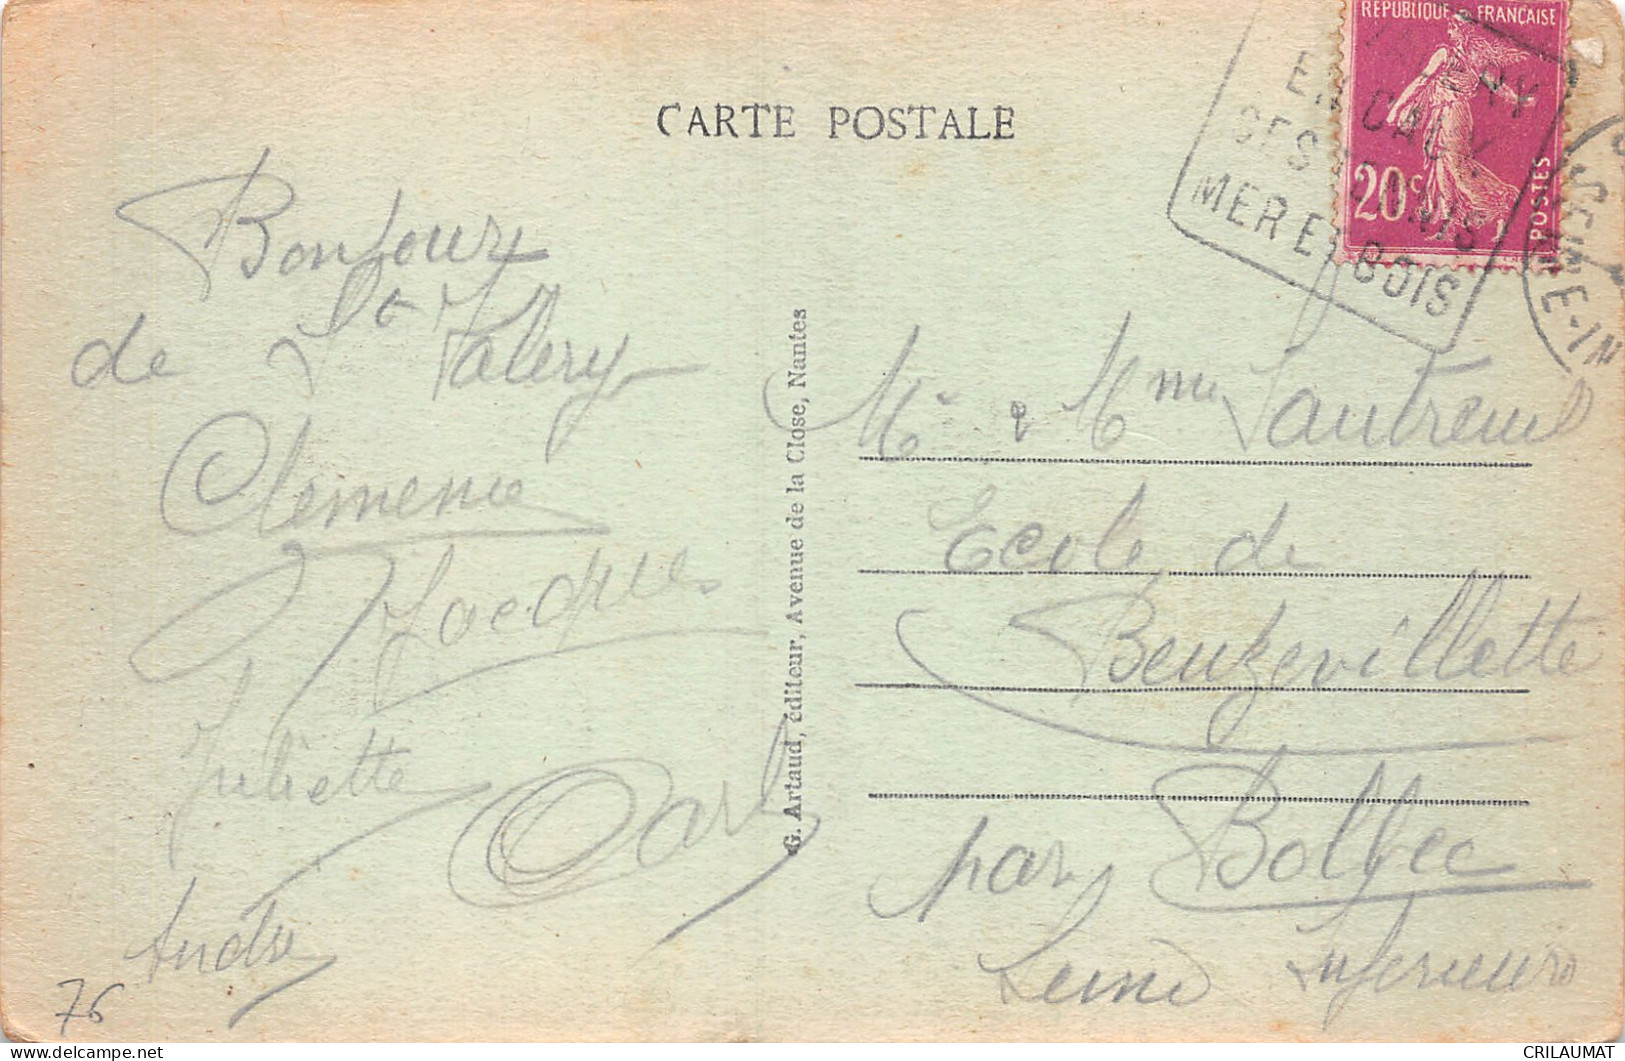 CARTE POSTALE
RÉPUBLIQUE FRANÇAISE
20c
POSTES
EN CAUX
SES
MER ET BOIS
SEINE-IN
Bonjour
de St Valery
Clemence
Jacques
Juliette
André
76
G. Artaud, éditeur, Avenue de la Close, Nantes
Mr & Mme Vautreuil
Ecole de
Beuzevillette
par Bolbec
Seine Inferieure
CRILAUMAT